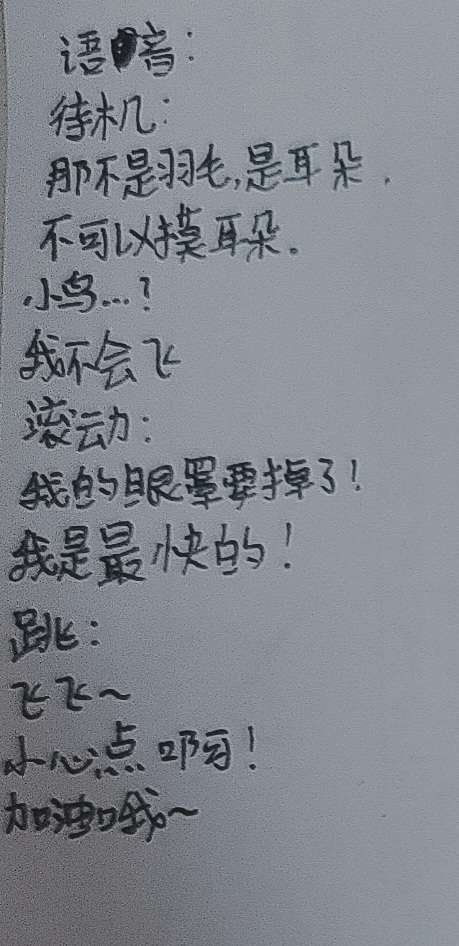 语音：
待机：
那不是羽毛,是耳朵.
不可以摸耳朵.
小鸟...?
我不会飞
滚动：
我的眼罩要掉了!
我是最快的!
跳：
飞飞~
小心点啊!
加油哦~